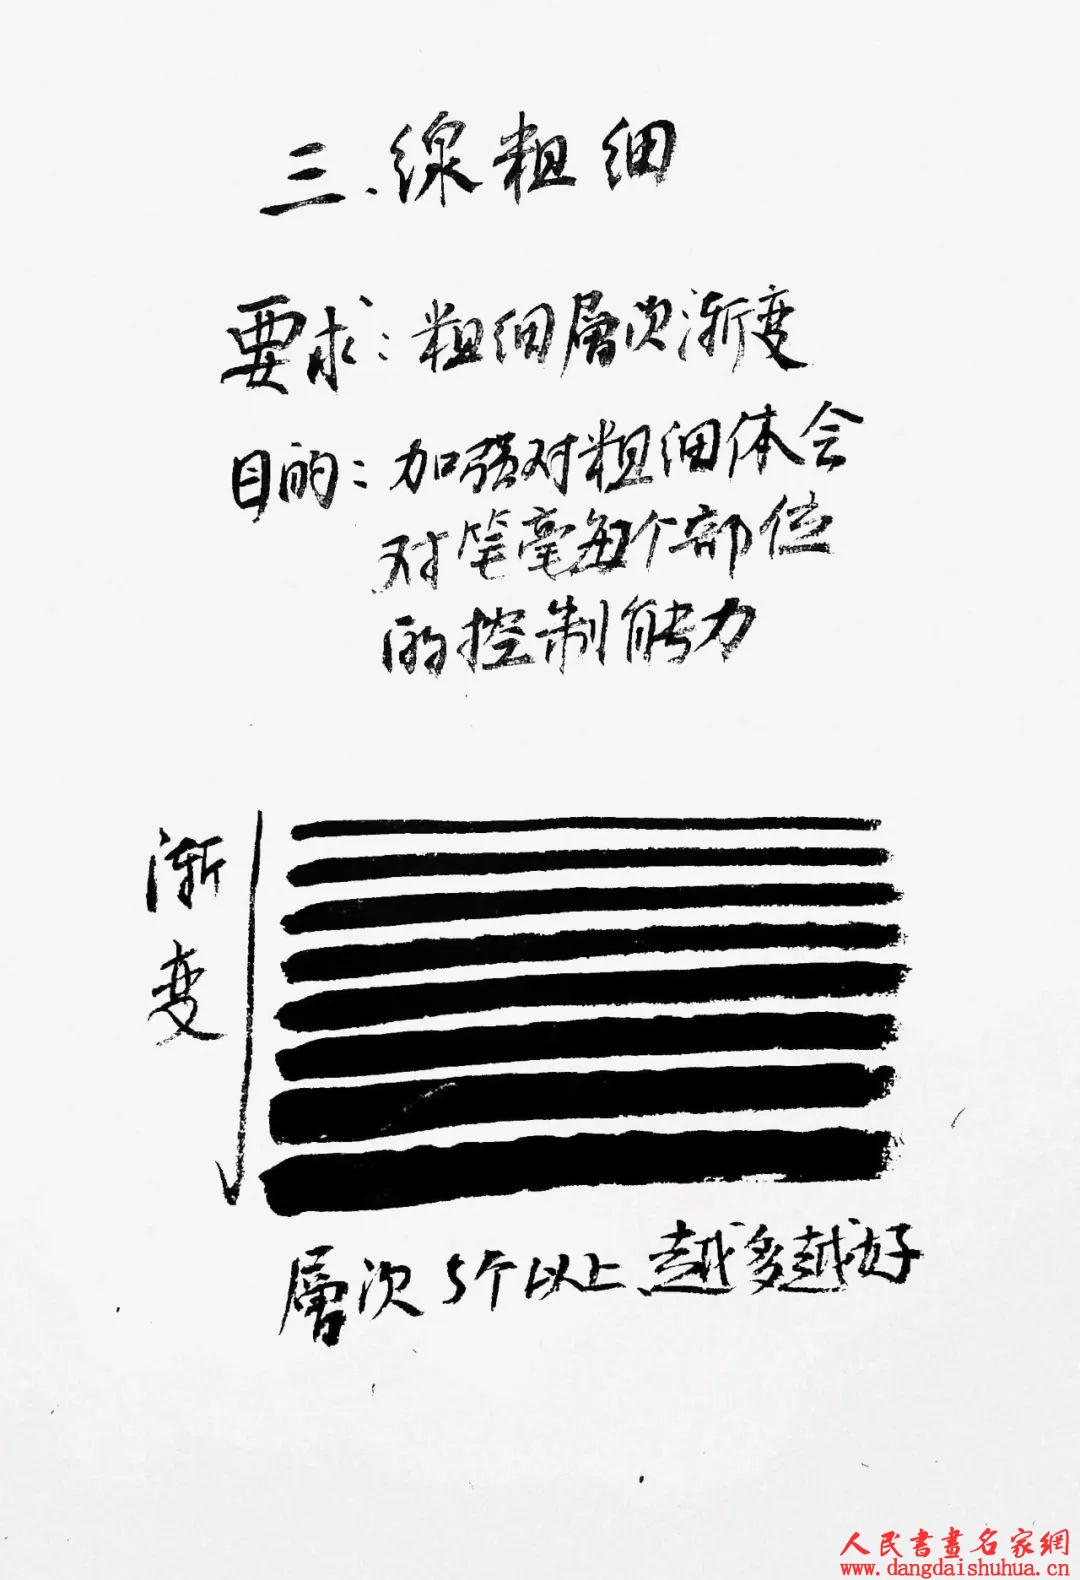 三、線粗细
要求：粗细層次渐度
目的：加强对粗细体会
对笔毫每个部位
的控制能力
渐变
層次5个以上、越多越好
人民書畫名家網
www.dangdaishuhua.com.cn